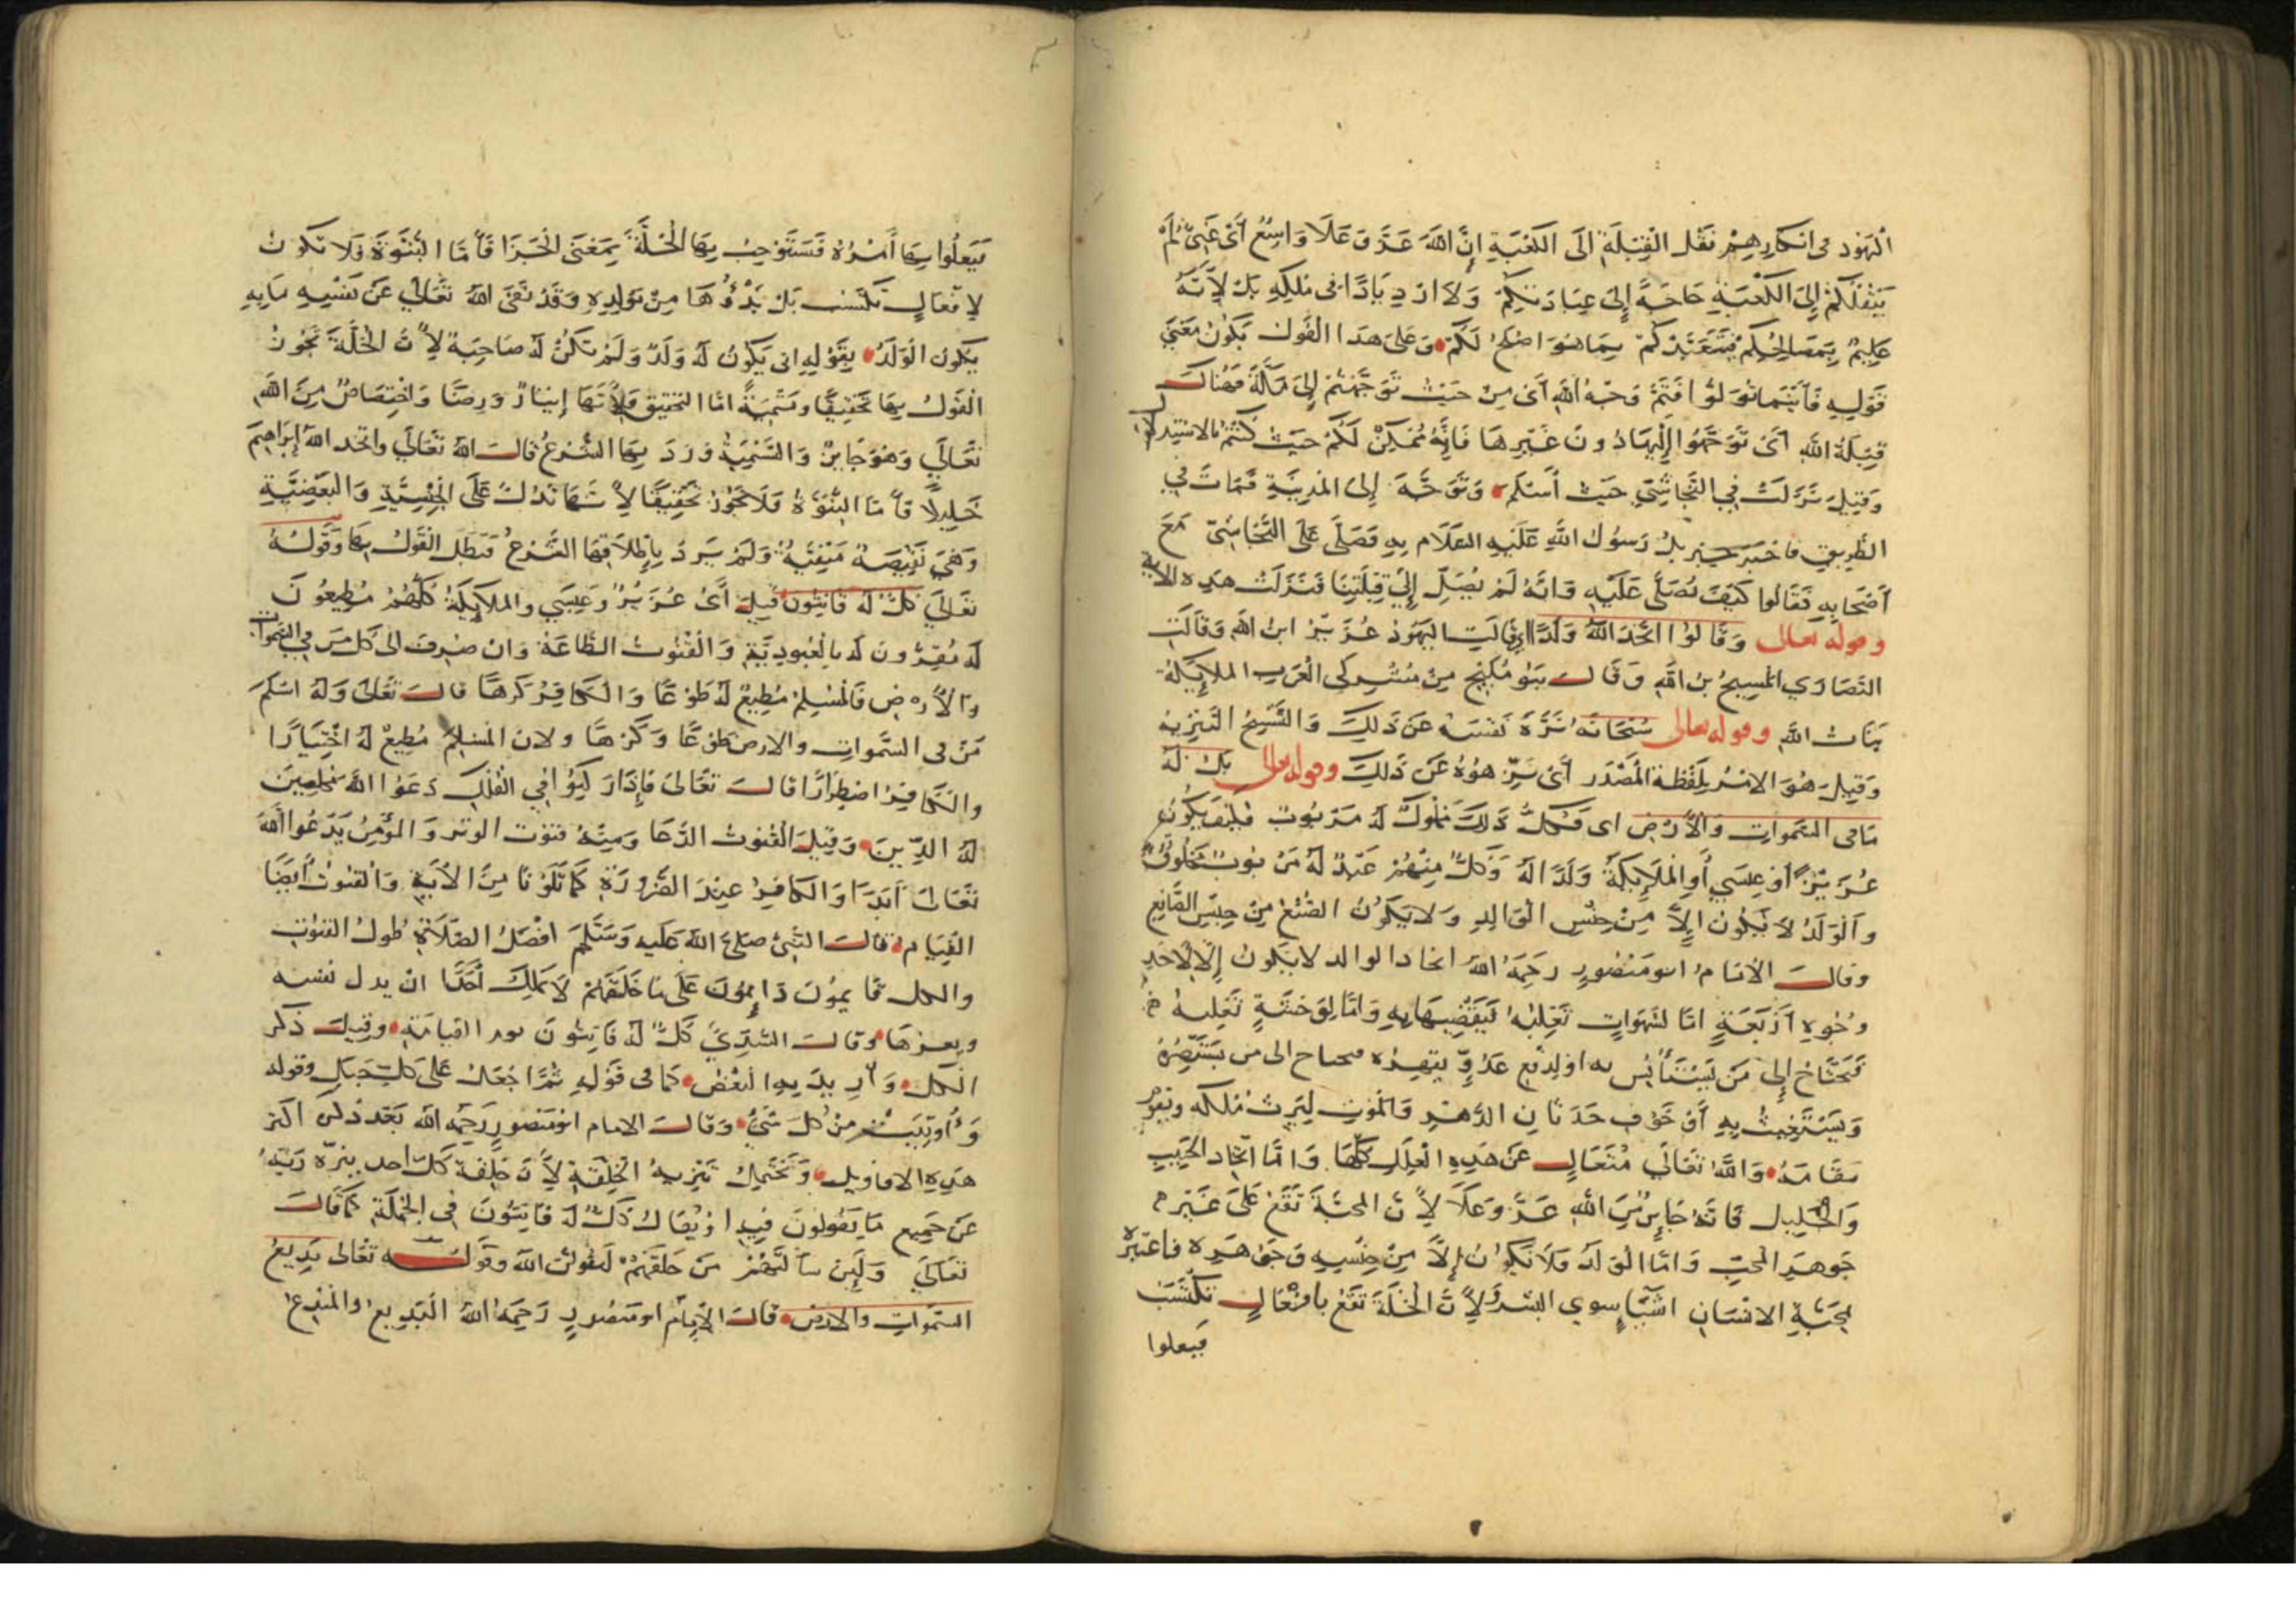 اليَهُود فى انكارِهِمْ نَقْل القِبْلَةِ الَى الكَعْبَةِ اِنَّ اللهَ عَزَّ وَعَلَا وَاسِعٌ أَىْ غَنِىٌّ لَمْ
يَنْقُلْكُمْ إِلَى الكَعْبَةِ حَاجَةً إِلَى عِبَادَتِكُمْ وَلَا ازْدِيَادًا فى مُلْكِهِ بَلْ لِأَنَّهُ
عَلِيمٌ بِمَصَالِحِكُمْ فَيَتَعَبَّدُكُمْ بِمَا هُوَ اصْلَحُ لَكُمْ وَعَلى هَذا القَول يَكُونُ مَعْنَى
قَوْلِهِ فَأَيْنَمَا تُوَلّوُا فَثَمَّ وَجْهُ اللهِ أَىْ مِنْ حَيْثُ تَوَجَّهْتُمْ إِلَى مَكَّةَ فَهُنَاكَ
قِبْلَةُ اللهِ أَىْ تَوَجَّهُوا إِلَيْهَا دُونَ غَيْرِهَا فَإِنَّهُ مُمْكِنٌ لَكُمْ حَيْثُ كُنْتُمْ بالاسْتِدلَالِ
وَقِيلَ نَزَلَتْ فِي النَّجَاشِيِّ حَيْثُ أَسْلَمَ وَتَوَجَّهَ إِلى المَدِينَةِ فَمَاتَ فِي
الطَّرِيقِ فاخبَرَ جبريلُ رَسُولَ اللهِ عَلَيْهِ السَّلَام بِهِ فَصَلَّى عَلَى النَّجَاشِىّ مَعَ
أَصْحَابِهِ فَقَالُوا كَيْفَ نُصَلِّى عَلَيْهِ وَانَّهُ لَمْ يُصَلِّ إِلَى قِبْلَتِنَا فَنَزَلَتْ هَذِهِ الاية
وقوله تعالى وَقَالُوا اتَّخَذَ اللهُ وَلَدًا اى قَالَتِ اليَهُودُ عُزَيْرٌ ابنُ اللهِ وَقَالَتِ
النَّصَارَي المَسِيحُ بنُ اللهِ وَقَالَت بَنُو مُلَيْحٍ مِنْ مُشْرِكى العَرَبِ المَلايِكَةُ
بَنَاتُ اللهِ وقوله تعالى سُبْحَانَهُ نَزَّهَ نَفْسَهُ عَنْ ذَلِكَ وَالتَّسْبِيحُ التَّنْزِيهُ
وَقِيلَ هُوَ الامْرُ بِلَفْظَةِ المَصْدَر أَىْ نَزِّهُوُهُ عَنْ ذَلِكَ وقوله تعالى بَلْ لَهُ
مَا فى السَّموَاتِ وَالأَرْضِ اى فَكُلُّ ذَلِكَ مَمْلُوكٌ لَهُ مَرْبُوبٌ فكَيْفَ يَكُونُ
عُزَيْرٌ أَو عِيسَي أَوِ المَلَايِكَةُ وَلَدًا لَهُ وَكُلٌّ مِنْهُمْ عَبْدٌ لَهُ مَرْبُوبٌ مَخْلُوقٌ
وَالْوَلَدُ لَا يَكُونُ اِلاَّ مِنْ جِنْسِ الْوَالِدِ وَلا يَكُونُ الصُّنْعُ مِنْ جِنْسِ الصَّانِعِ
وقالَت الاِمَامُ ابو مَنْصُورٍ رَحِمَهُ اللهُ اتخاذ الوالد لا يَكُونُ إِلَّا لِاَحَدِ
وُجُوهٍ أَرْبَعَةٍ امَّا لشَهَوَاتٍ تَغْلِبُهُ فَيَقْضِيهَا بِهِ وَامَّا لِوَحْشَةٍ تَغْلِبُهُ
فَيَحْتَاجُ إِلَى مَنْ يَسْتَأْنِسُ به او لِدَفْعِ عَدُوٍّ يقهرُه فيحتاج الى من يَسْتَنْصِرُهُ
وَيَسْتَغِيثُ بِهِ أَوْ خَوْفِ حَدَثَانِ الدَّهْرِ وَالْمَوْتِ لِيَرِثَ مُلكَه وَيَقُومَ
مَقَامَهُ وَاللهُ تَعَالَى مُتَعَالٍ عَنْ هَذِهِ الْعِلَلِ كُلِّهَا وَامَّا اتِّخَاذ الحَبِيبِ
وَالخَلِيل فَانَّهُ جَايِزٌ مِنَ اللهِ عَزَّ وَعَلَا لِأَنَّ المحبَّةَ تَقَعُ عَلَى غَيْرِ
جَوْهَرِ المحِبِّ وَامَّا الْوَلَدُ فَلَا يَكُونُ إِلاَّ مِنْ جِنْسِهِ وَجَوْهَرِهِ فاعْتَبِرْهُ
بمَحَبَّةِ الانْسَانِ اشْيَاءَ سِوي البَشَرِ وَلِأَنَّ الخُلَّةَ تَقَعُ بافْعَالٍ تكْتَسَبُ
فيعلوا
فَيَعلُوا بِهَا أَمْرُهُ فَتَسْتَوْجِبُ بِهَا الْخُلَّةَ بِمَعْنَى الْجَزَا فَأَمَّا البُنُوَّةُ فَلا تكونُ
لِافْعَالٍ تُكْتَسَب بَلْ بَدْؤُهَا مِنْ تَوْلِدِهِ وَقَدْ نَفَى اللهُ تَعَالَى عَنْ نَفْسِهِ مَا بِهِ
يَكُونُ الْوَلَدُ بِقَوْلِهِ انى يَكُونُ لَهُ وَلَدٌ وَلَمْ تَكُنْ لَهُ صَاحِبَةٌ لِأَنَّ الخُلَّةَ تَجُوزُ
الْقَولُ بِهَا تَحْقِيقًا وتَسْمِيَةً امَّا التَحقِيق فَلِأَنَّهَا إِيثَارٌ وَرِضًا وَاخْتِصَاصٌ مِنَ اللهِ
تَعَالَي وَهُوَ جَايزٌ وَالتَّسْمِيَةُ وَرَدَ بِهَا الشَّرْعُ قالَت اللهُ تَعَالَي واتخذ اللهُ إِبْرَاهِيمَ
خَلِيلًا فأَمَّا البُنُوَّةُ فَلَا تَجُوزُ تَحْقِيقًا لِأَنَّهَا تَدُلُّ عَلَى الجِنْسِيَّةِ وَالبَعْضِيَّةِ
وَهْىَ نَقِيصَةٌ مَنْفِيَّةٌ وَلَمْ يَرِدْ بِإِطْلَاقِهَا الشَّرْعُ فَبَطَلَ القَوْلُ بِهَا وَقَوْلُهُ
تَعَالَى كُلٌّ لَهُ قَانِتُونَ قِيلَ أَىْ عُزَيْرٌ وَعِيسَي والمَلَايِكَةُ كُلُّهُمْ مُطِيعُونَ
لَهُ مُقِرُّونَ لَهُ بِالْعُبُودِيَّةِ وَالْقُنُوتُ الطَّاعَةُ وَان صُرِفَ الى كُلِّ مَنْ في السَّموَاتِ
وَالْأَرْضِ فَالمُسْلِمُ مُطِيعٌ لَهُ طَوْعًا وَالْكَافِرُ كَرْهًا قالَت تَعَالَى وَلَهُ اسْلَمَ
مَنْ فى السَّموَاتِ والارض طَوعًا وَكَرْهًا ولان المُسْلِمَ مُطِيعٌ لَهُ اخْتِيَارًا
والكَافِرُ اضْطِرَارًا قالَت تَعَالَى فَإِذَا رَكِبُوُا فِي الفُلْكِ دَعَوُا اللهَ مُخْلِصِينَ
لَهُ الدِّينَ وَقِيلَ القُنُوتُ الدُّعَا وَمِنْهُ قنوت الوتر وَالمُؤْمِنُ يَدْعُوا اللهَ
تَعَالَى أَبَدًا وَالكافِرُ عِنْدَ الضَّرُورَةِ كَمَا تَلَوْنَا مِنَ الْأَيَةِ وَالقنوتُ أَيْضًا
القِيَام قالَت النَّبِىّ صَلى اللهُ عَلَيه وَسَلَّمَ افْضَلُ الصَّلَاةِ طُولُ القُنُوتِ
والكل قايمُونَ دَايِمُونَ عَلَى مَا خَلَقَهُمْ لَا يَمْلِكُ أَحَدًا انْ يبدل نفسه
ويغيرهَا وقالَت السُّدِّيُّ كُلٌّ لَهُ قَانِتُونَ يوم القِيامَةِ وقِيلَ ذكر
الكُل وَأُرِيدَ بِهِ البَعْض كَمَا فى قَوْلِهِ ثُمَّ اجْعَلْ عَلَى كُلِّ جَبَلٍ وَقوله
وَأُوتِيَتْ مِنْ كُلِّ شَىْءٍ وَقالَت الامام ابو مَنْصورٍ رَحِمَهُ الله بَعْدَ ذكر اكثر
هَذِهِ الاقاوِيل وَيَحْتَمِلُ تَنْزِيهُ الْخِلْقَةِ لِأَنَّ خِلْقَةَ كلِّ احدٍ ينزه رَبَّهُ
عَنْ جَمِيعِ مَا يَقُولُونَ فِيهِ اوْ يُقَالُ كُلٌّ لَهُ قَانِتُونَ في الجُمْلَةِ كَمَا قَالَت
تَعَالَي وَلَئِنْ سَأَلْتَهُمْ مَنْ خَلَقَهُمْ لَيَقُولُنَّ اللهُ وقَولُه تعَالى بَدِيعُ
السَّموَاتِ والارض قالَت الاِمَامُ ابو مَنصورٍ رَحِمَهُ اللهُ البَدِيعُ والمُبْدِعُ